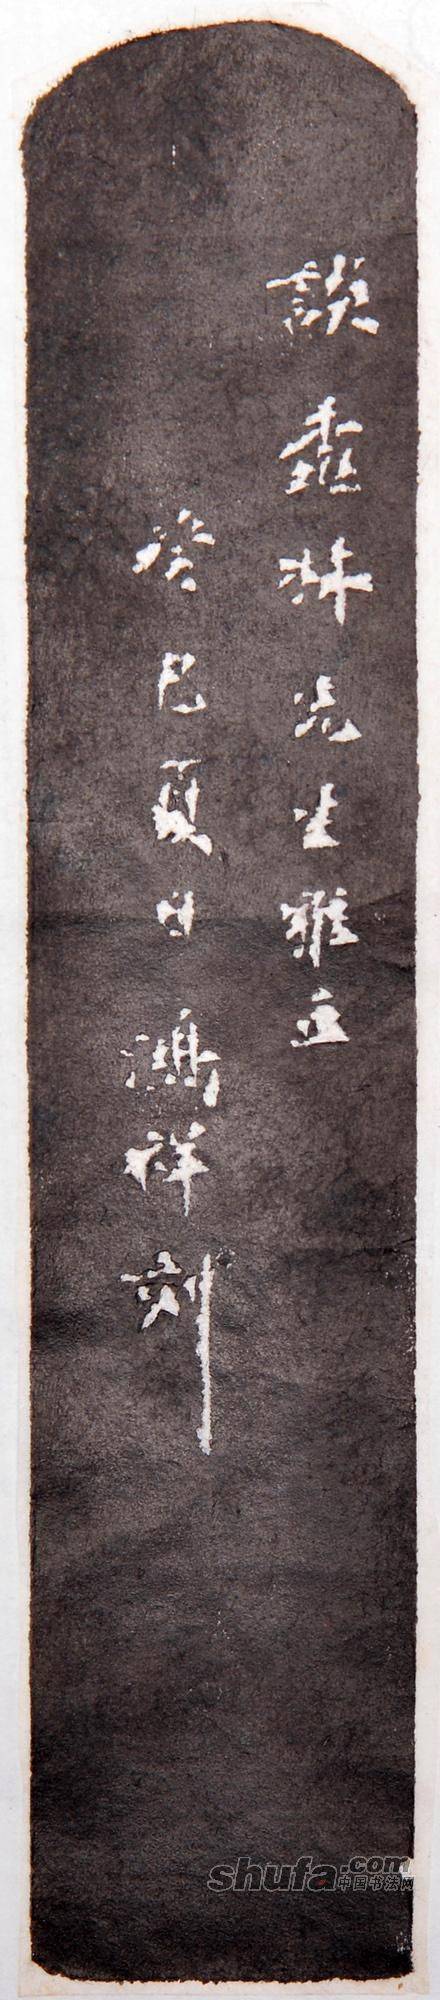 談壺林先生雅正
癸巳夏日鴻祥刻
shufa.com
中国书法网